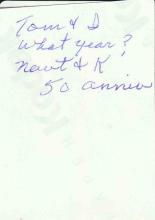 Tom & I
What year?
Newt & K
50 anniv